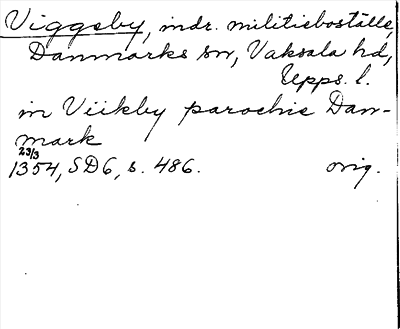 Viggeby, indr. militieboställe,
Danmarks sn, Vaksala hd,
Upps. l.
in Viikby parochie Dan-
mark
23/3
1354, SD6, s. 486. orig.